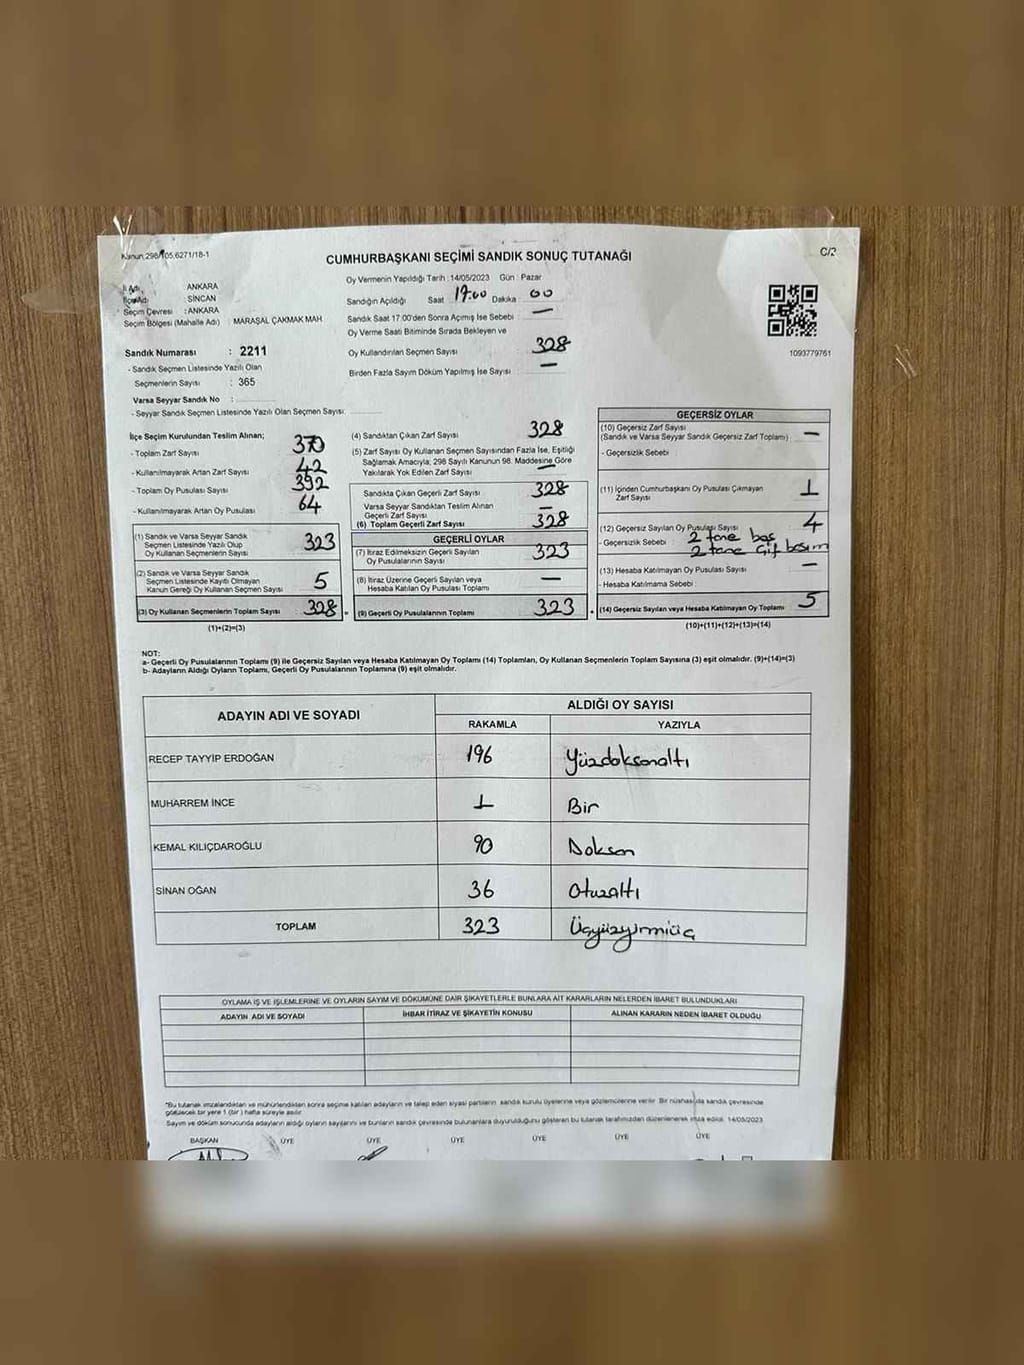 Kanun, 298/105.6271/18-1
C/2
CUMHURBAŞKANI SEÇİMİ SANDIK SONUÇ TUTANAĞI
İl Adı ANKARA
İlçe Adı SİNCAN
Seçim Çevresi : ANKARA
Seçim Bölgesi (Mahalle Adı) MARAŞAL ÇAKMAK MAH
Sandık Numarası : 2211
- Sandık Seçmen Listesinde Yazılı Olan
Seçmenlerin Sayısı : 365
Varsa Seyyar Sandık No :
- Seyyar Sandık Seçmen Listesinde Yazılı Olan Seçmen Sayısı:
Oy Vermenin Yapıldığı Tarih : 14/05/2023 Gün : Pazar
Sandığın Açıldığı Saat 17:00 Dakika : 00
Sandık Saat 17:00'den Sonra Açımış İse Sebebi : —
Oy Verme Saati Bitiminde Sırada Bekleyen ve
Oy Kullandırılan Seçmen Sayısı 328
Birden Fazla Sayım Döküm Yapılmış İse Sayısı : —
1093779761
İlçe Seçim Kurulundan Teslim Alınan;
- Toplam Zarf Sayısı 370
- Kullanılmayarak Artan Zarf Sayısı 42
- Toplam Oy Pusulası Sayısı 392
- Kullanılmayarak Artan Oy Pusulası 64
(1) Sandık ve Varsa Seyyar Sandık
Seçmen Listesinde Yazılı Olup
Oy Kullanan Seçmenlerin Sayısı 323
(2) Sandık ve Varsa Seyyar Sandık
Seçmen Listesinde Kayıtlı Olmayan
Kanun Gereği Oy Kullanan Seçmen Sayısı 5
(3) Oy Kullanan Seçmenlerin Toplam Sayısı 328 =
(1)+(2)=(3)
(4) Sandıktan Çıkan Zarf Sayısı 328
(5) Zarf Sayısı Oy Kullanan Seçmen Sayısından Fazla İse, Eşitliği
Sağlamak Amacıyla, 298 Sayılı Kanunun 98. Maddesine Göre
Yakılarak Yok Edilen Zarf Sayısı —
Sandıkta Çıkan Geçerli Zarf Sayısı 328
Varsa Seyyar Sandıktan Teslim Alınan
Geçerli Zarf Sayısı —
(6) Toplam Geçerli Zarf Sayısı 328
GEÇERLİ OYLAR
(7) İtiraz Edilmeksizin Geçerli Sayılan
Oy Pusulalarının Sayısı 323
(8) İtiraz Üzerine Geçerli Sayılan veya
Hesaba Katılan Oy Pusulası Toplamı —
(9) Geçerli Oy Pusulalarının Toplamı 323
GEÇERSİZ OYLAR
(10) Geçersiz Zarf Sayısı
(Sandık ve Varsa Seyyar Sandık Geçersiz Zarf Toplamı) —
- Geçersizlik Sebebi :
(11) İçinden Cumhurbaşkanı Oy Pusulası Çıkmayan
Zarf Sayısı 1
(12) Geçersiz Sayılan Oy Pusulası Sayısı 4
- Geçersizlik Sebebi : 2 tane boş
2 tane çift basım
(13) Hesaba Katılmayan Oy Pusulası Sayısı —
- Hesaba Katılmama Sebebi :
(14) Geçersiz Sayılan veya Hesaba Katılmayan Oy Toplamı 5
(10)+(11)+(12)+(13)=(14)
NOT:
a- Geçerli Oy Pusulalarının Toplamı (9) ile Geçersiz Sayılan veya Hesaba Katılmayan Oy Toplamı (14) Toplamları, Oy Kullanan Seçmenlerin Toplam Sayısına (3) eşit olmalıdır. (9)+(14)=(3)
b- Adayların Aldığı Oyların Toplamı, Geçerli Oy Pusulalarının Toplamına (9) eşit olmalıdır.
ADAYIN ADI VE SOYADI ALDIĞI OY SAYISI
RAKAMLA YAZIYLA
RECEP TAYYİP ERDOĞAN 196 Yüzdoksanaltı
MUHARREM İNCE 1 Bir
KEMAL KILIÇDAROĞLU 90 Doksan
SİNAN OĞAN 36 Otuzaltı
TOPLAM 323 Üçyüzyirmiüç
OYLAMA İŞ VE İŞLEMLERİNE VE OYLARIN SAYIM VE DÖKÜMÜNE DAİR ŞİKAYETLERLE BUNLARA AİT KARARLARIN NELERDEN İBARET BULUNDUKLARI
ADAYIN ADI VE SOYADI İHBAR İTİRAZ VE ŞİKAYETİN KONUSU ALINAN KARARIN NEDEN İBARET OLDUĞU
"Bu tutanak imzalandıktan ve mühürlendikten sonra seçime katılan adayların ve talep eden siyasi partilerin sandık kurulu üyelerine veya gözlemcilerine verilir. Bir nüshası da sandık çevresinde
görülecek bir yere 1 (bir) hafta süreyle asılır.
Sayım ve döküm sonucunda adayların aldığı oyların sayılarını ve bunların sandık çevresinde bulunanlara duyurulduğunu gösteren bu tutanak tarafımızdan düzenlenerek imza edildi. 14/05/2023
BAŞKAN ÜYE ÜYE ÜYE ÜYE ÜYE ÜYE